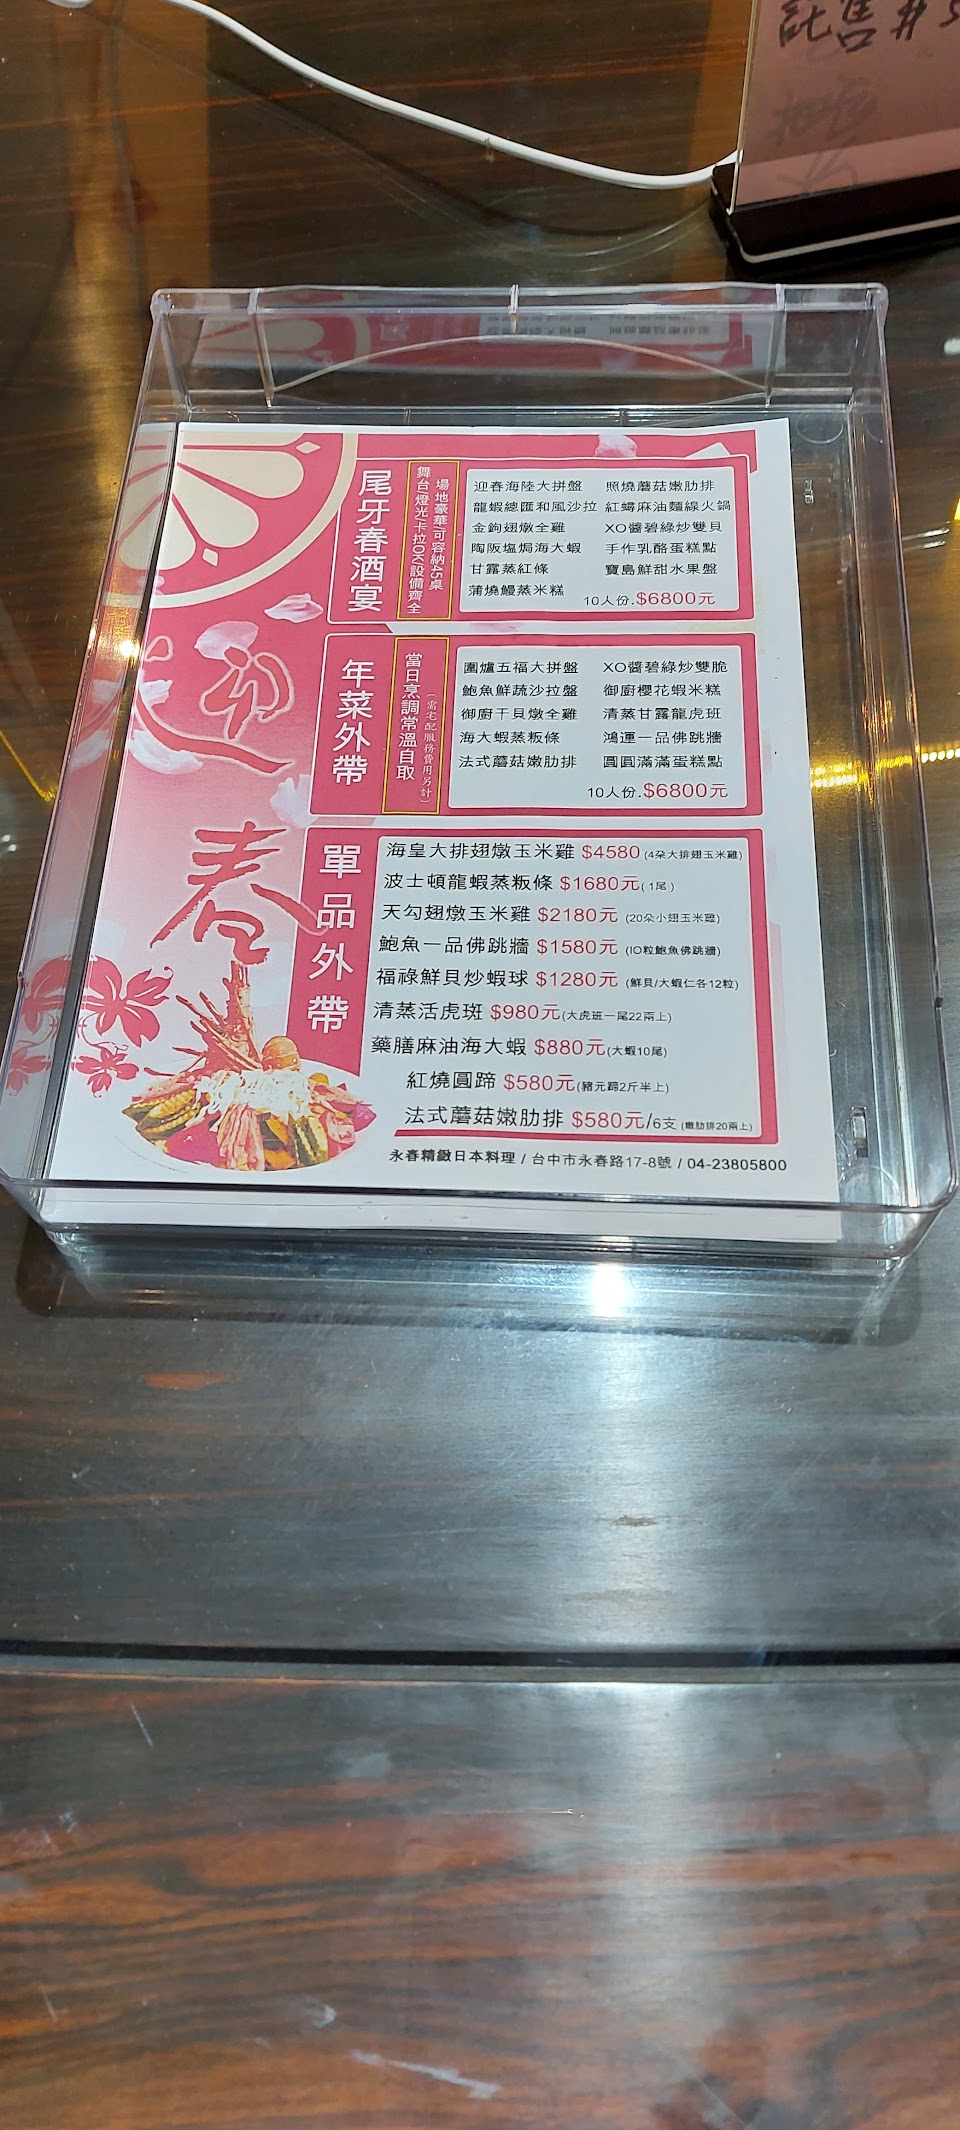 託售#
尾牙春酒宴
場地豪華/可容納45桌
舞台/燈光/卡拉OK/設備齊全
迎春海陸大拼盤 照燒蘑菇嫩肋排
龍蝦總匯和風沙拉 紅蟳麻油麵線火鍋
金鉤翅燉全雞 XO醬碧綠炒雙貝
陶阪塩焗海大蝦 手作乳酪蛋糕點
甘露蒸紅條 寶島鮮甜水果盤
蒲燒鰻蒸米糕
10人份.$6800元
年菜外帶
當日烹調常溫自取
(需宅配服務費用另計)
圍爐五福大拼盤 XO醬碧綠炒雙脆
鮑魚鮮蔬沙拉盤 御廚櫻花蝦米糕
御廚干貝燉全雞 清蒸甘露龍虎班
海大蝦蒸粄條 鴻運一品佛跳牆
法式蘑菇嫩肋排 圓圓滿滿蛋糕點
10人份.$6800元
迎春
單品外帶
海皇大排翅燉玉米雞 $4580(4朵大排翅玉米雞)
波士頓龍蝦蒸粄條 $1680元(1尾)
天勾翅燉玉米雞 $2180元 (20朵小翅玉米雞)
鮑魚一品佛跳牆 $1580元 (10粒鮑魚佛跳牆)
福祿鮮貝炒蝦球 $1280元 (鮮貝/大蝦仁各12粒)
清蒸活虎斑 $980元(大虎斑一尾22兩上)
藥膳麻油海大蝦 $880元(大蝦10尾)
紅燒圓蹄 $580元(豬元蹄2斤半上)
法式蘑菇嫩肋排 $580元/6支 (嫩肋排20兩上)
永春精緻日本料理 / 台中市永春路17-8號 / 04-23805800